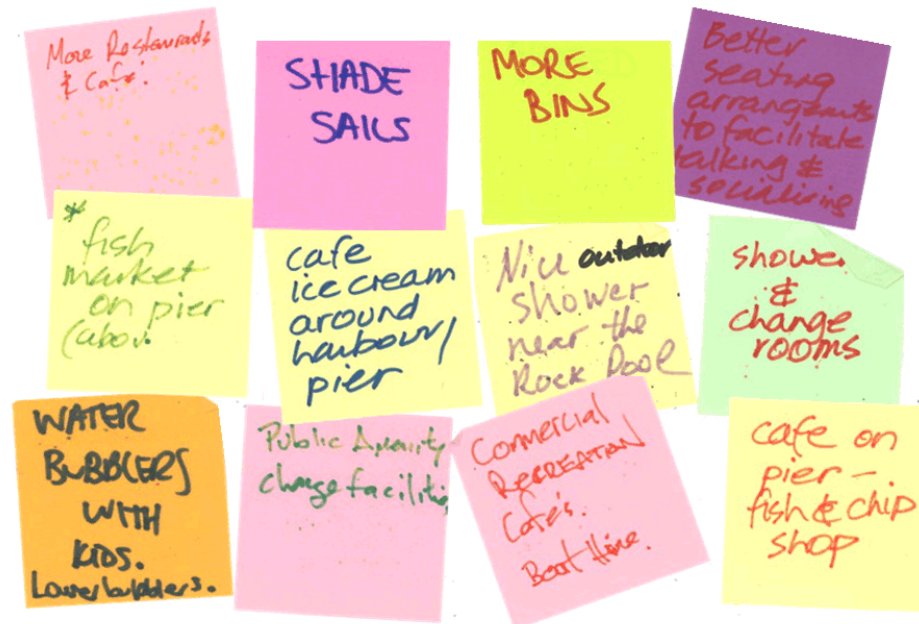 More Restaurants
& Cafe's
SHADE
SAILS
MORE
BINS
Better
seating
arrangments
to facilitate
talking &
socialising
*
fish
market
on pier
cafe
ice cream
around
harbour/
pier
Nice outdoor
shower
near the
Rock Pool
shower
&
change
rooms
WATER
BUBBLERS
WITH
KIDS.
Lower bubblers.
Public Amenity
change facilities
Commercial
RECREATION
Cafés.
Boat Hire.
cafe on
pier –
fish & chip
shop